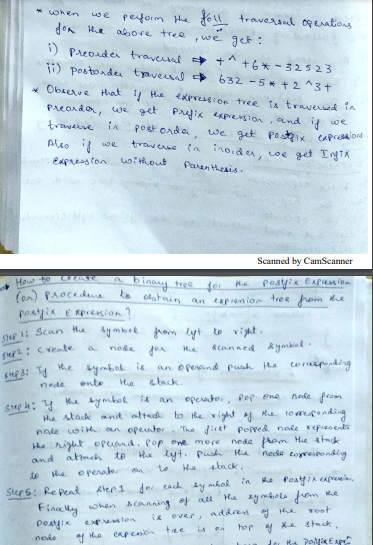 * when we perform the foll traversal operations
for the above tree, we get :
i) Preorder traversal ⇒ + ^ + 6 * - 32 5 2 3
ii) postorder traversal ⇒ 632 - 5 * + 2 ^ 3 +
* Observe that if the expression tree is traversed in
preorder, we get prefix expression, and if we
traverse in postorder, we get postfix expression
Also if we traverse in inorder, we get Infix
Expression without Parenthesis.
Scanned by CamScanner
How to create a binary tree for the postfix Expression
(or) Procedure to obtain an expression tree from the
postfix Expression?
Step 1: Scan the symbol from left to right.
Step 2: Create a node for the scanned symbol.
Step 3: If the symbol is an operand push the corresponding
node onto the stack.
Step 4: If the symbol is an operator, pop one node from
the stack and attach to the right of the corresponding
node with an operator. The first popped node represents
the right operand. Pop one more node from the stack
and attach to the left. Push the node corresponding
to the operator on to the stack.
Step 5: Repeat step 1 for each symbol in the postfix expression.
Finally when scanning of all the symbols from the
postfix expression is over, address of the root
node of the expression tree is on top of the stack.
for the postfix Expr